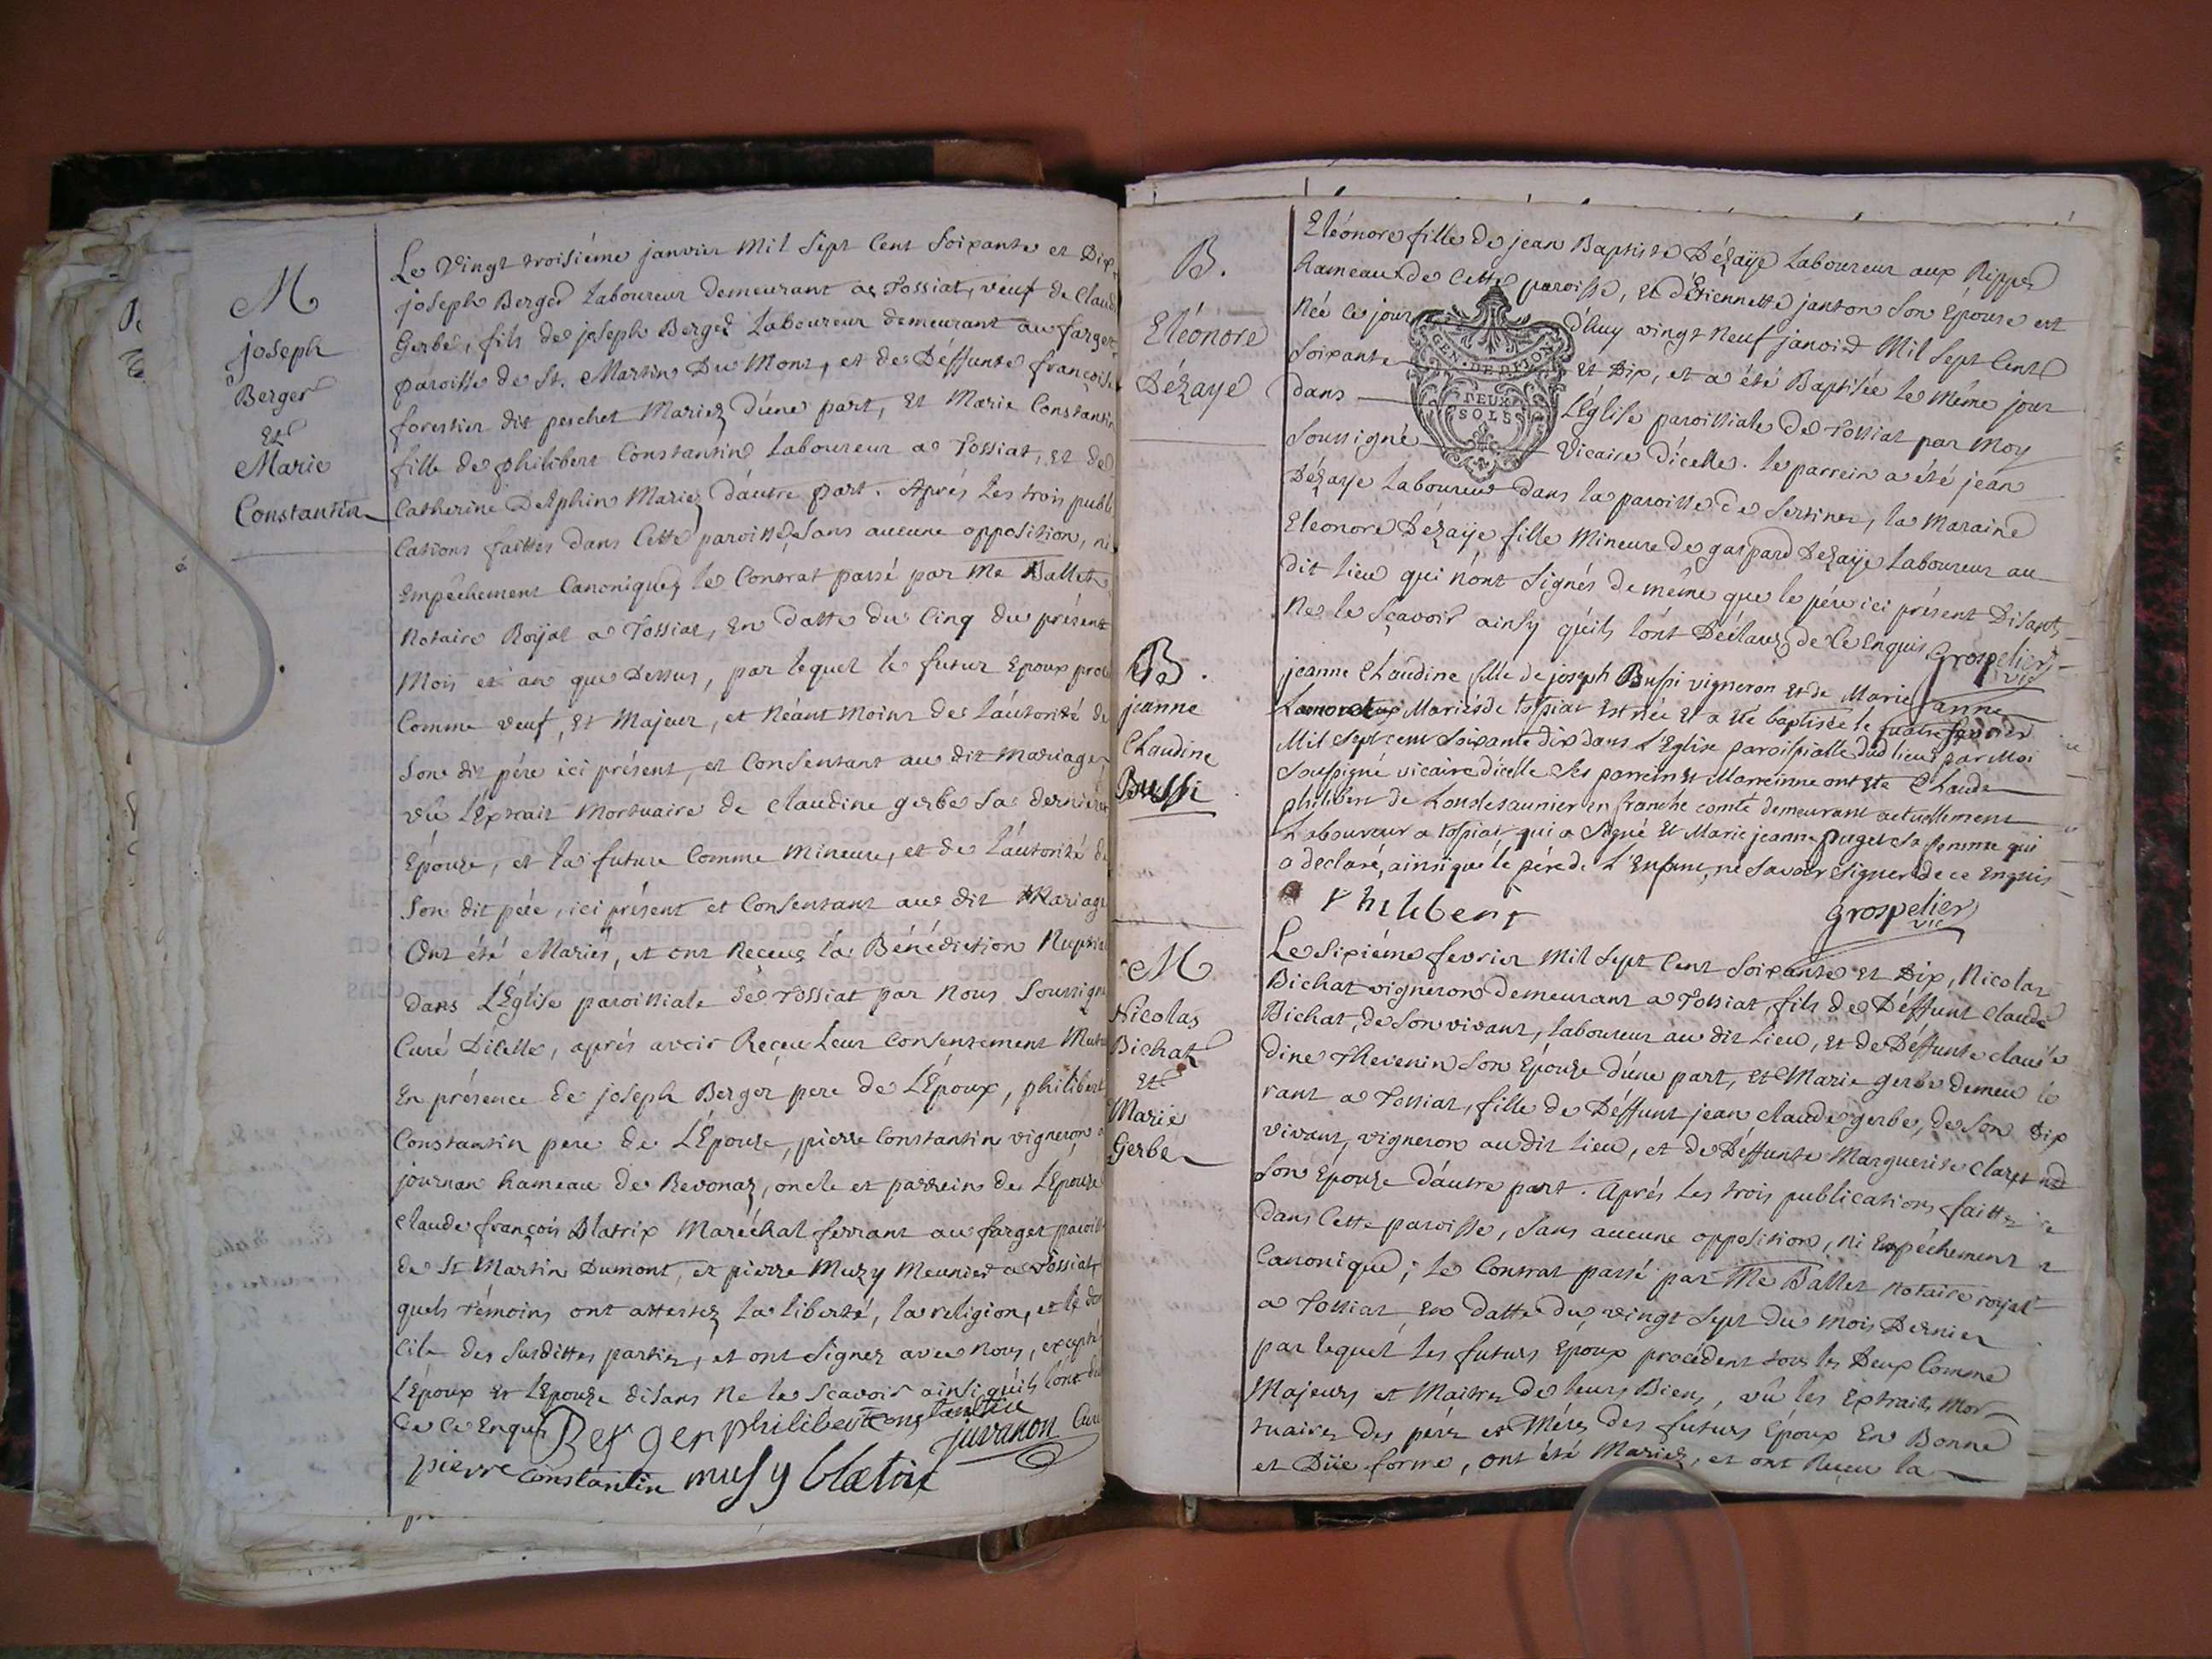 M
joseph
Berger
Et
Marie
Constantin
Le Vingt troisiéme janvier Mil Sept Cent Soixante et Dix
joseph Berger Laboureur demeurant a Tossiat, veuf de Claud
Gerbe, fils de joseph Berger Laboureur demeurant au farget
paroisse de St. Martin Du Mont, et de Déffunte françoise
forestier dit peschet Mariez d'une part, Et Marie Constantin
fille de philibert Constantin Laboureur a Tossiat, et de
Catherine Delphin Mariez d'autre part. Aprés les trois publi
cations faittes dans Cette paroisse, sans aucune opposition, ni
Empêchement Canonique, le Contrat passé par Me Ballet
Notaire Royal a Tossiat, En datte du Cinq du présent
Mois et an que Dessus, par lequel le futur Epoux pro
Comme veuf, Et Majeur, et Néant moins de L'autorité de
Son dit pére ici présent, et Consentant au dit Mariage
vû L'Extrait Mortuaire de Claudine gerbe Sa derniere
Epouze, et La future Comme Mineure, et de L'autorité de
Son dit pére, ici présent et Consentant au dit Mariage
Ont été Mariés, et ont Receus la Bénédiction Nuptia
dans L'Église paroissiale de Tossiat par Nous Soussigné
Curé Dicelle, aprés avoir Reçeu Leur Consentement Mutu
En présence de joseph Berger pere de L'Époux, philibert
Constantin pere de L'Épouse, pierre Constantin vigneron a
journan hameau de Revonaz, oncle et parrein de L'Épouze
Claude françois Blatrix Maréchal ferrant au farget paroiss
de St Martin Dumont, et pierre Muzy Meunier a Tossiat,
quels témoins ont attestez La liberté, la religion, et le do
cile des Susdittes parties, et ont Signez avec Nous, excepté
L'Époux Et L'Epouze disans Ne le Scavoir ainsi qu'ils l'ont
de Ce Enquis Berger philibert Constantin juvanon Curé
pierre Constantin musy blatrix
B.
Eléonore
Dézaye
Eléonore fille de jean Baptiste Dézaÿe Laboureur aux Rippes
hameau de Cette paroisse, Et d'Étiennette janton Son Épouse est
Née Ce jour d'huy vingt Neuf janvier Mil Sept Cent
Soixante Et Dix, et a été Baptisée Le Même jour
dans L'Église paroissiale de Tossiat par Moy
Soussigné Vicaire d'icelle. le parrein a été jean
GEN. DE DIJON
DEUX
SOLS
Dézaye Laboureur dans la paroisse de Sertines, La Maraine
Eleonore Dézaÿe fille Mineure de gaspard Dezaÿe Laboureur au
dit Lieu qui n'ont Signés de même que le pére ici présent Disants
Ne le Sçavoir ainsy qu'ils l'ont Déclarez de Ce Enquis Grospelier
vic
B.
jeanne
Claudine
Bussi
jeanne Claudine fille de joseph Bussi vigneron Et de Marie anne
Mariés de tossiat Est née Et a Eté baptisée le quatre fevrier
Mil Sept cent Soixante dix dans L'Eglise paroissialle dud lieu par Moi
Soussigné vicaire dicelle Ses parrein et Marreinne ont Eté Claude
philibert de Lonslesaunier en franche comté demeurant actuellement
Laboureur a tossiat qui a Signé Et Marie jeanne puget Sa femme qui
a declaré, ainsi que le pére de L'Enfant, ne Savoir Signer de ce Enquis
Philibert Grospelier
vic
M
Nicolas
Bichat
Et
Marie
Gerbe
Le Sixiéme fevrier Mil Sept Cent Soixante Et Dix, Nicolas
Bichat vigneron demeurant a Tossiat, fils de Déffunt Claude
Bichat, de Son vivant, Laboureur au dit Lieu, Et de Déffunte Clau
dine Thevenin Son Épouze d'une part, Et Marie gerbe demeu
rant a Tossiat, fille de Déffunt jean Claude gerbe, de Son
vivant, vigneron au dit Lieu, et de Déffunte Marguerite Claret
Son Épouze d'autre part. Aprés Les trois publications faittes
dans Cette paroisse, Sans aucune opposition, Ni Empéchement
Canonique; Le Contrat passé par Me Ballet Notaire royal
a Tossiat, En datte du vingt Sept du Mois Dernier
par lequel Les futurs Époux procédent tous les Deux Comme
Majeurs et Maitres de leurs Biens, vû les Extraits Mor-
tuaires des péres et Méres des futurs Époux En Bonne
et Düe forme, ont été Mariez, et ont Reçeu la